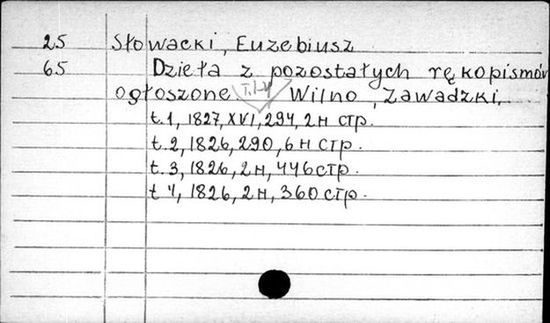 25 Słowacki, Euzebiusz
65 Dzieła z pozostałych rękopismów
ogłoszone. T. I-IV Wilno, Zawadzki,
t. 1, 1827, XVI, 294, 2н стр.
t. 2, 1826, 290, 6н стр.
t. 3, 1826, 2н, 446 стр.
t. 4, 1826, 2н, 360 стр.